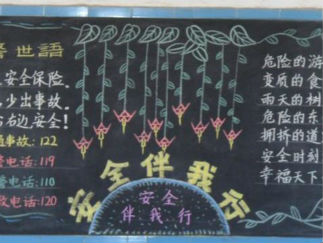 警世語
安全保险
少出事故
右边安全!
事故: 122
警电话: 119
警电话: 110
救电话: 120
安全伴我行
安全
伴我行
危险的游
变质的食
雨天的树
危险的东
拥挤的道
安全时刻
幸福天下